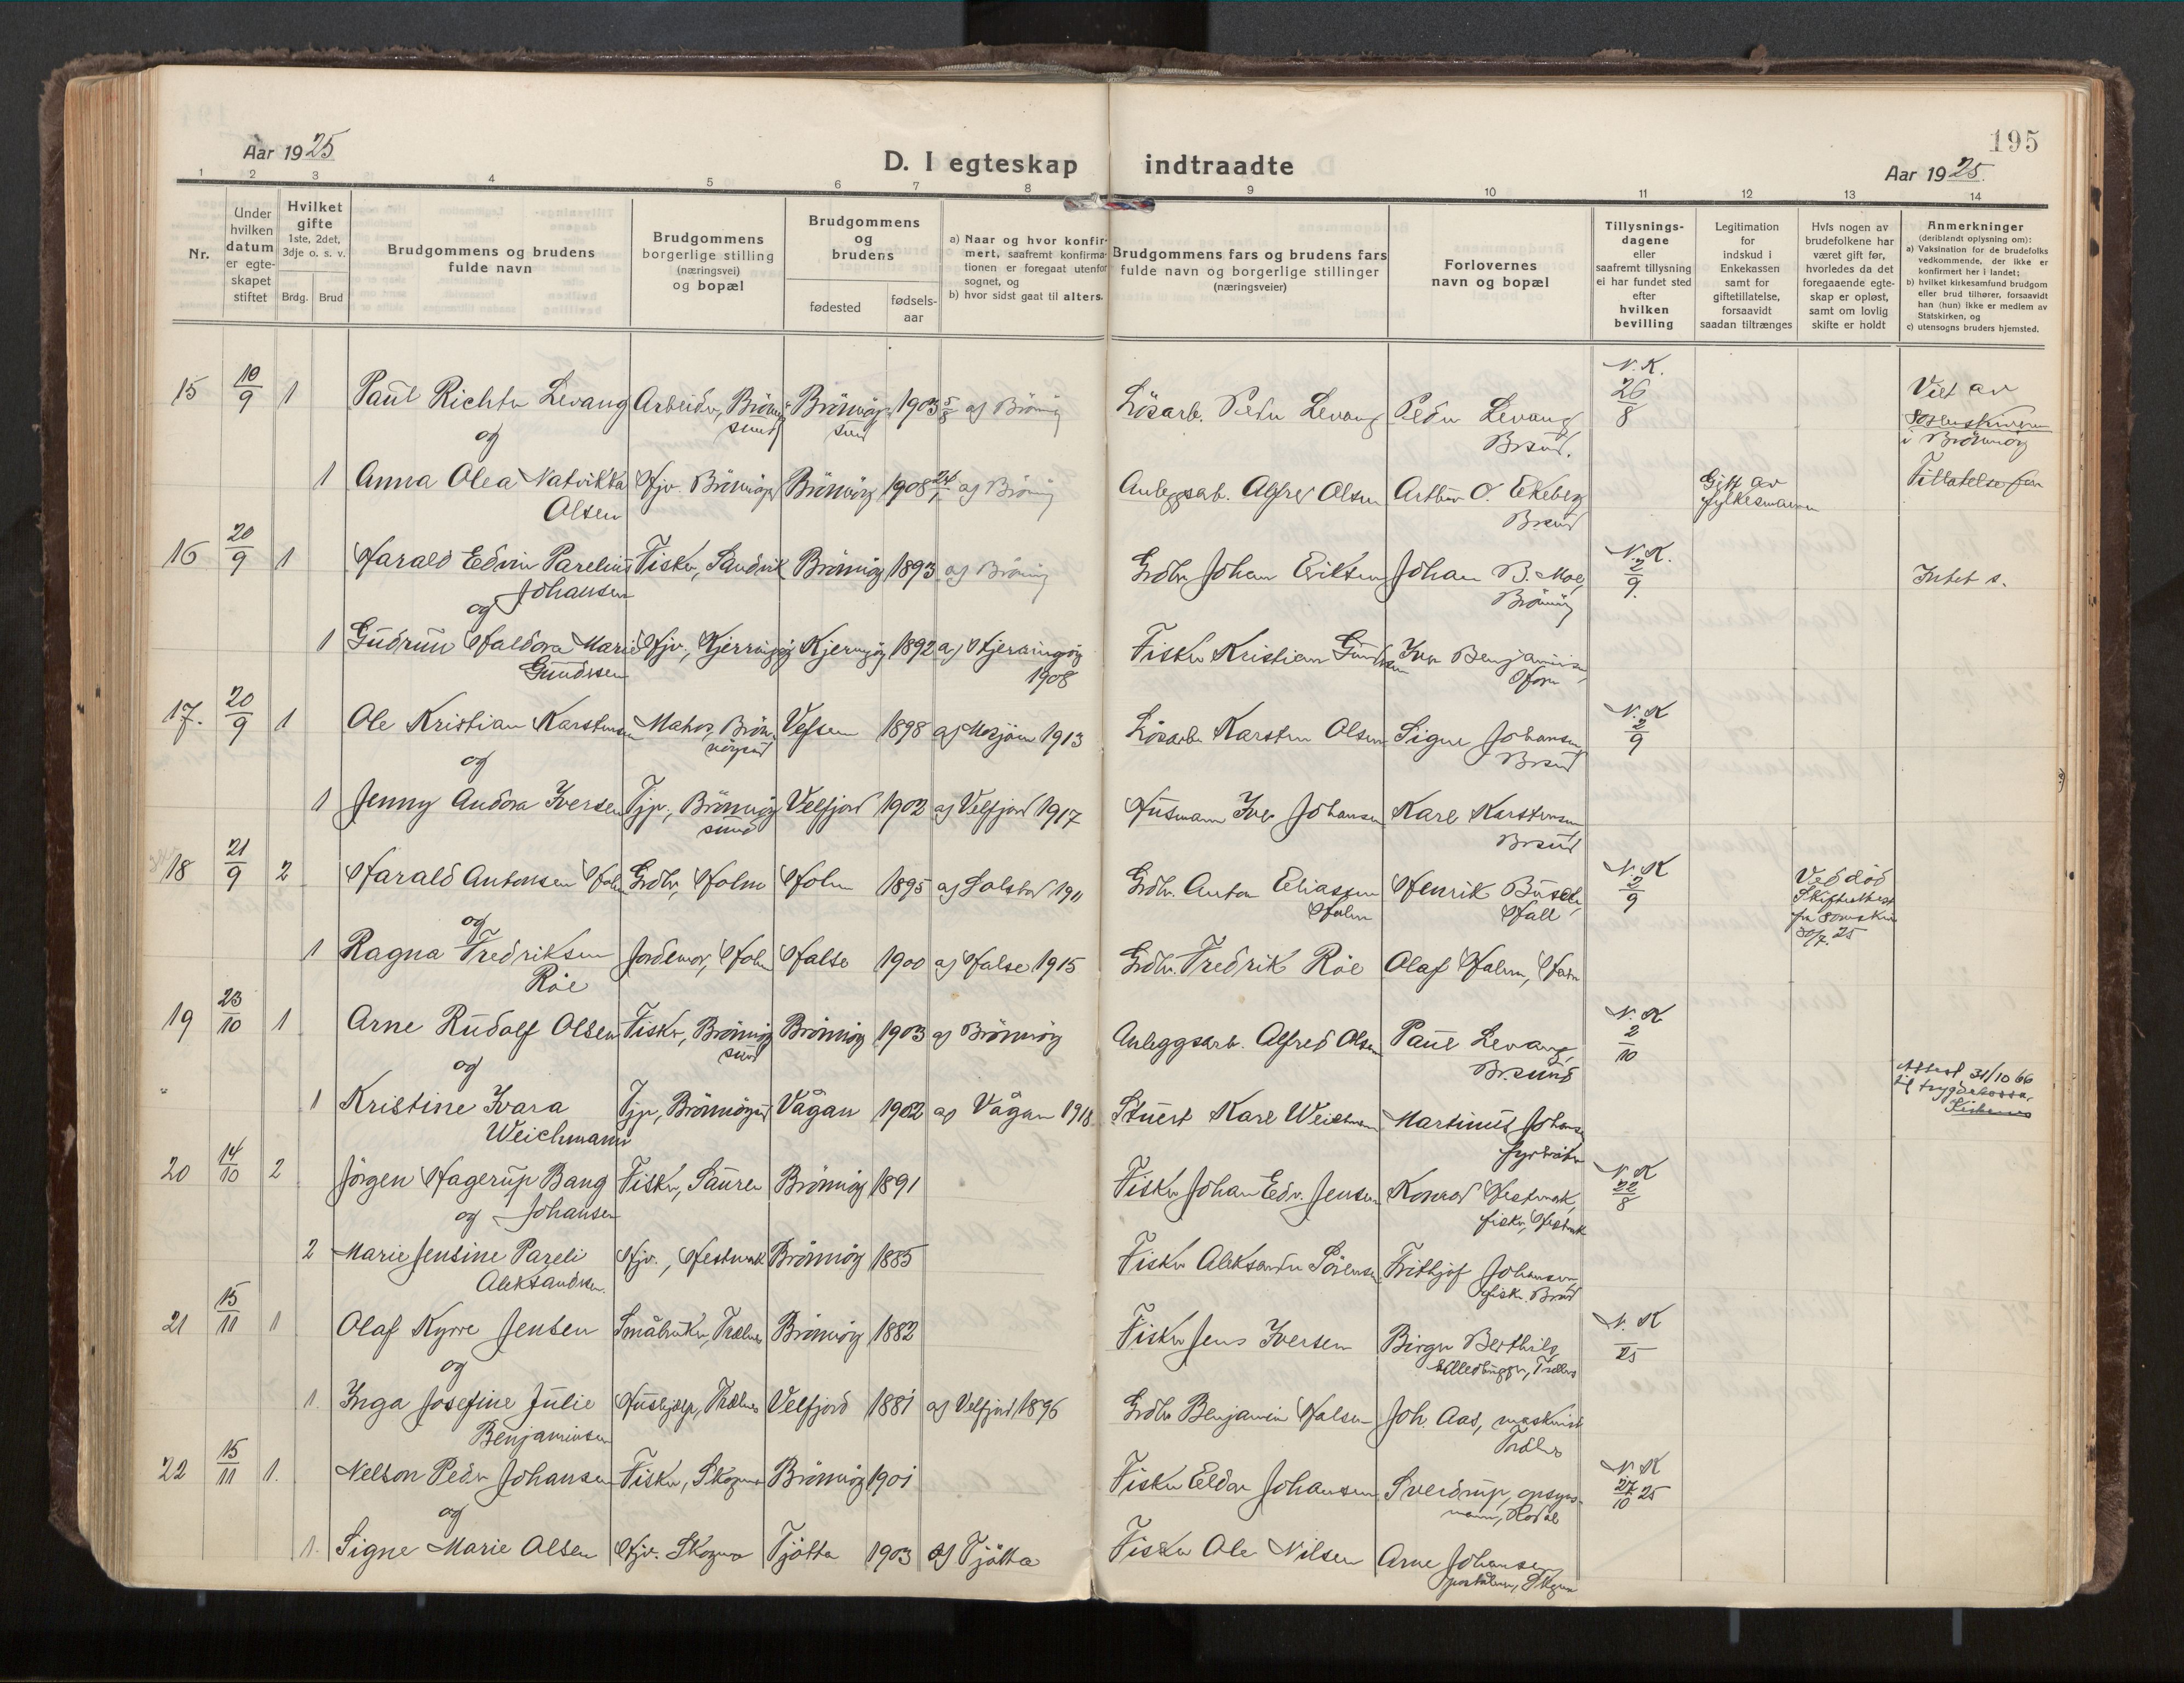 195
Aar 1925
D. I egteskap indtraadte
Aar 1925.
1 2 3 4 5 6 7 8 9 10 11 12 13 14
Nr.
Under hvilken datum er egteskapet stiftet
Hvilket gifte 1ste, 2det, 3dje o. s. v.
Brdg. Brud
Brudgommens og brudens fulde navn
Brudgommens borgerlige stilling (næringsvei) og bopæl
Brudgommens og brudens
fødested
fødselsaar
a) Naar og hvor konfirmert, saafremt konfirmationen er foregaat utenfor sognet, og
b) hvor sidst gaat til alters.
Brudgommens fars og brudens fars fulde navn og borgerlige stillinger (næringsveier)
Forlovernes navn og bopæl
Tillysningsdagene eller saafremt tillysning ei har fundet sted efter hvilken bevilling
Legitimation for indskud i Enkekassen samt for giftetillatelse, forsaavidt saadan tiltrænges
Hvis nogen av brudefolkene har været gift før, hvorledes da det foregaaende egteskap er opløst, samt om lovlig skifte er holdt
Anmerkninger (deriblandt oplysning om):
a) Vaksination for de brudefolks vedkommende, der ikke er konfirmert her i landet;
b) hvilket kirkesamfund brudgom eller brud tilhører, forsaavidt han (hun) ikke er medlem av Statskirken, og
c) utensogns bruders hjemsted.
15 10/9 1 Paul Richter Levang Arbeider, Brönnöysund Brönnöysund 1903 5/8 af Brönnöy Lösarb. Peder Levang Peder Levang Brsund. N.K. 26/8 Viet av Sorenskriveren i Brönnöy
og
1 Anna Olea Natvikka Olsen Hjv. Brönnöy Brönnöy 1908 24/1 af Brönnöy Anleggsarb. Alfred Olsen Arthur O. Ekeberg Brsund Gift av fylkesmannen Tillatelse fra
16 20/9 1 Harald Edvin Parelius Johansen Fisker, Sandvik Brönnöy 1893 af Brönnöy Grdbr. Johan Eriksen Johan B. Moe, Brönnöy N.K. 2/9. Intet s.
og
1 Gudrun Haldora Marie Gundersen Hjv., Kjerringöy Kjerringöy 1892 af Kjerringöy 1908 Fisker Kristian Gundersen Iver Benjaminsen
17. 20/9 1 Ole Kristian Karstensen Matros, Brönnöysund Vefsen 1898 af Mosjöen 1913 Lösarb. Karsten Olsen Signe Johansen Brsund N.K 2/9
og
1 Jenny Andora Iversen Tjp., Brönnöysund Velfjord 1902 af Velfjord 1917 Husmann Iver Johansen Karl Karstensen Brsund
18 21/9 2 Harald Antonsen Holm Grdbr, Holm Holm 1895 af Solstad 1911 Grdbr. Anton Eliassen Holm Henrik N.K 2/9 Ved död Skifteattest fra sornskr 30/7. 25
og
1 Ragna Fredriksen Röe Jordemor, Holm Halse 1900 af Halse 1915 Grdbr. Fredrik Röe Olaf Holm, Holm
19 23/10 1 Arne Rudolf Olsen Fisker, Brönnöysund Brönnöy 1903 af Brönnöy Anleggsarb. Alfred Olsen Paul Levang, Brsund N.K 2/10
og
1 Kristine Ivara Weichmann Tjp, Brönnöysund Vågan 1902 af Vågan 1918 Stuert Karl Weichmann Martinus Johansen Attest 31/10 66 til trygdekassa.
20 14/10 2 Jörgen Hagerup Bang Johansen Fisker, Sauren Brönnöy 1891 Fisker Johan Edv. Jensen Konrad Hestmark, fisker, Hestmark N.K 22/8
og
2 Marie Jensine Pareli Aleksandersen. Hjv., Hestmark Brönnöy 1885 Fisker Aleksander Sörensen Frithjof Johansen fisker. Brsund
21 15/11 1 Olaf Kyrre Jensen Småbruker, Trælnes Brönnöy 1882 Fisker Jens Iversen Birger Berthils, Trælnes N.K 25
og
1. Inga Josefine Julie Benjaminsen Hushjelp, Trælnes Velfjord 1881 af Velfjord 1896 Grdbr Benjamin Halsen Joh. Aas, maskinist Trælnes
22 15/11 1. Nelson Peder Johansen Fisker, Skogmo Brönnöy 1901 Fisker Eldor Johansen Sverdrup, opsynsmann, N.K 27/10 25
og
1. Signe Marie Olsen Hjv. Skogmo Tjötta 1903 af Tjötta Fisker Ole Nilsen Arne Johansen